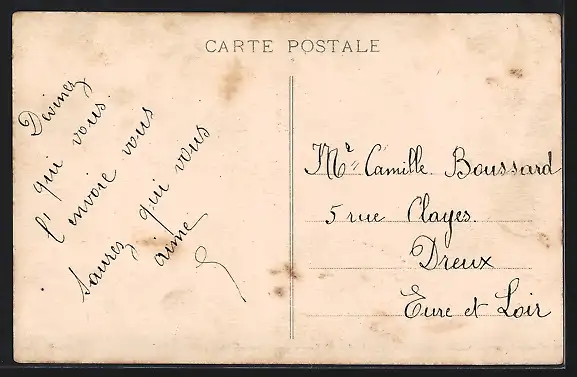 CARTE POSTALE
Devinez
qui vous
l'envoie vous
saurez qui vous
aime
Mr Camille Boussard
5 rue Clayes
Dreux
Eure et Loir